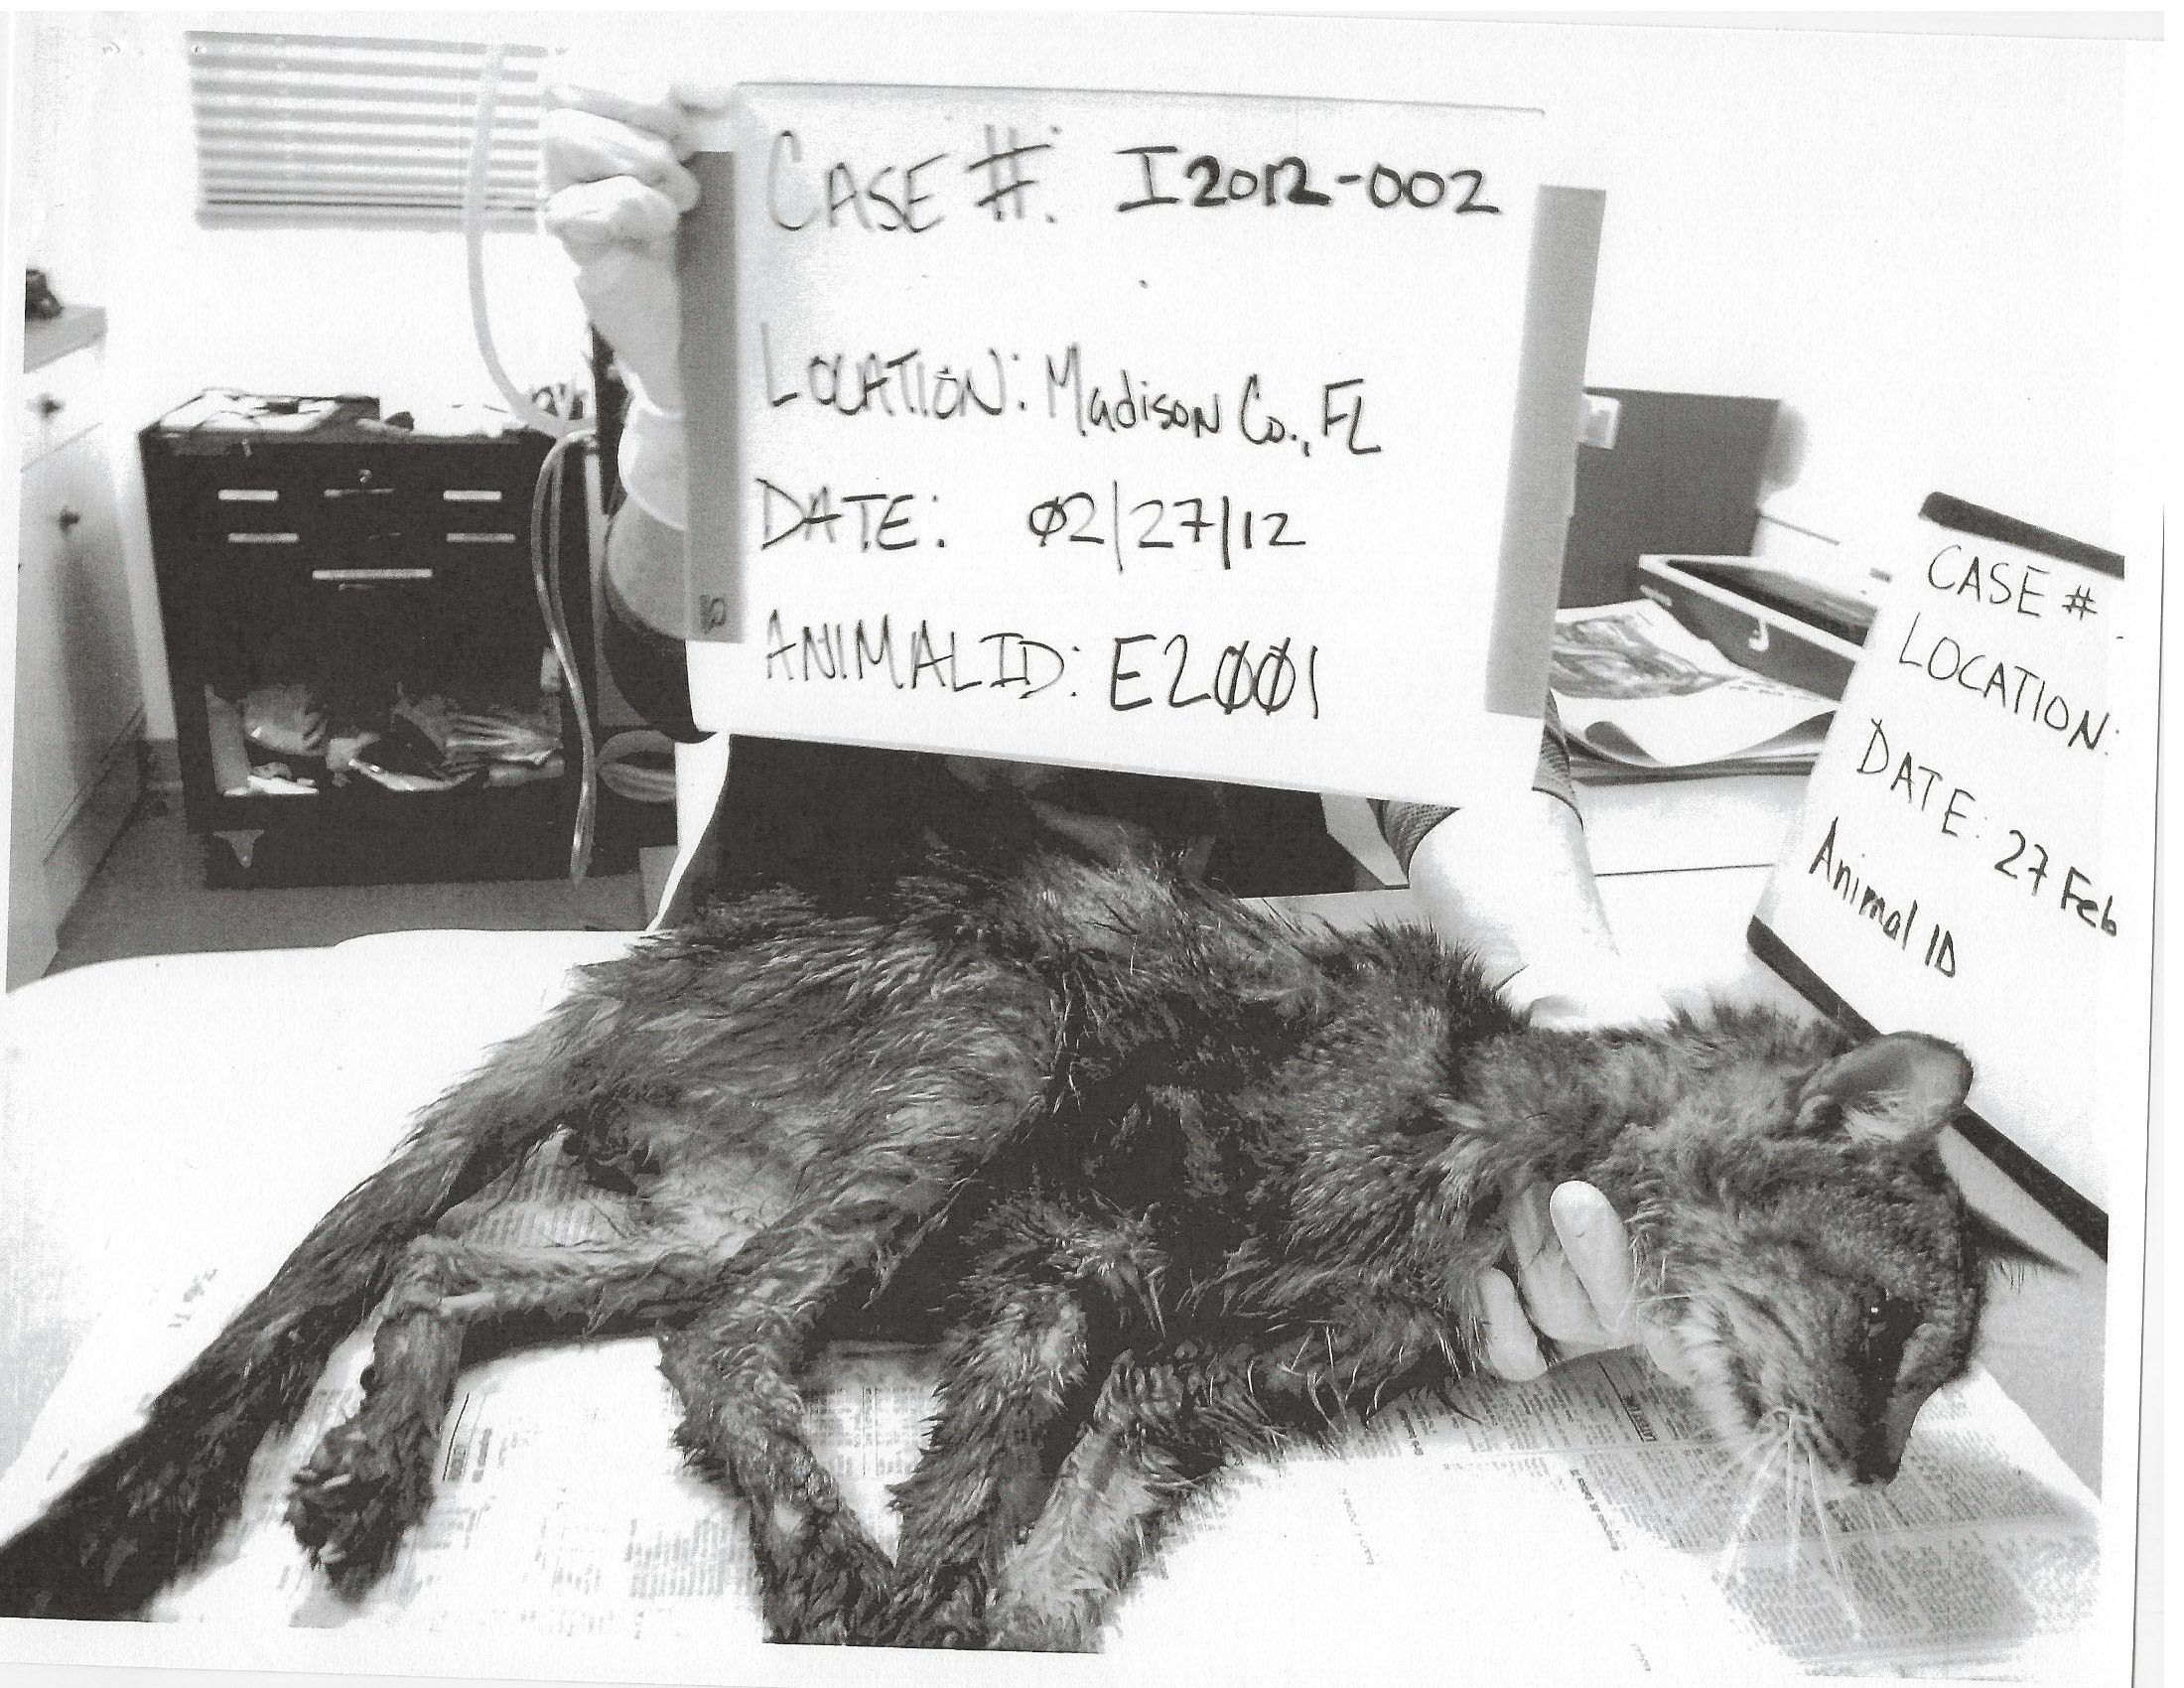 CASE #: I2012-002
LOCATION: Madison Co., FL
DATE: 02/27/12
ANIMAL ID: E2001
CASE #
LOCATION:
DATE: 27 Feb
Animal ID